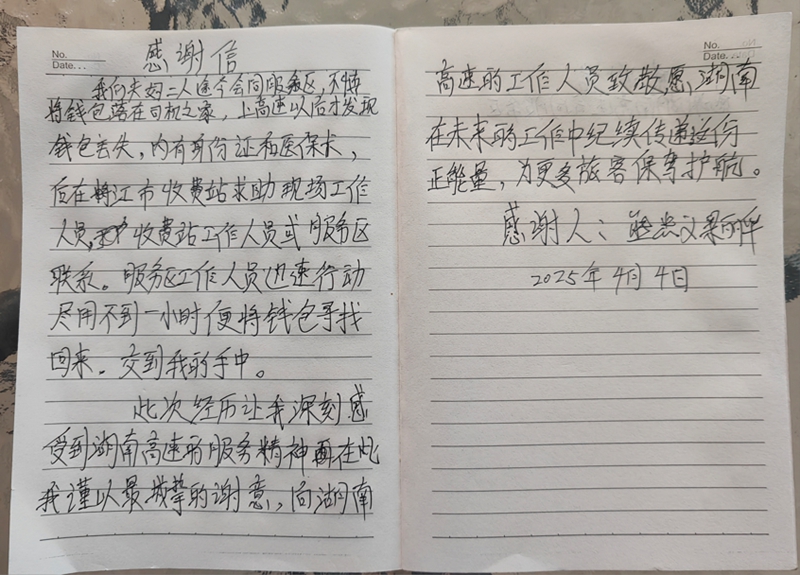 No.
Date. . .
感谢信
我们夫妇二人途今会同服务区，不慎
将钱包落在司机之家，上高速以后才发现
钱包丢失，内有身份证和医保卡，
后在江市收费站求助现场工作
人员，收费站工作人员或服务区
联系。服务区工作人员迅速行动
尽用不到一小时便将钱包寻找
回来．交到我的手中。
此次经历让我深刻感
受到湖南高速的服务精神再在此
我谨以最诚挚的谢意，向湖南
No.
Date. . .
高速的工作人员致敬愿湖南
在未来的工作中纪续传递这份
正能量，为更多旅客保驾护航。
感谢人：
2025年4月4日